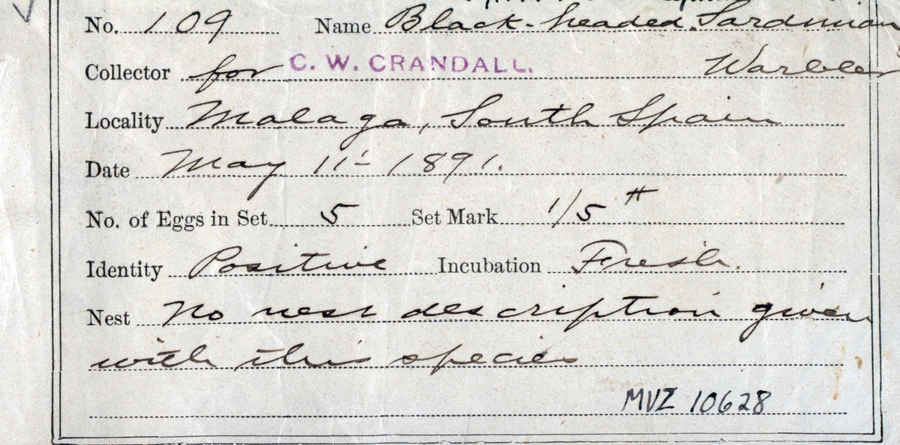 No. 109 Name Black-headed Sardinian
Collector for C. W. CRANDALL. Warbler
Locality Malaga, South Spain
Date May 11 - 1891.
No. of Eggs in Set 5 Set Mark 1/5 #
Identity Positive Incubation Fresh.
Nest No nest description given
with this species
MVZ 10628